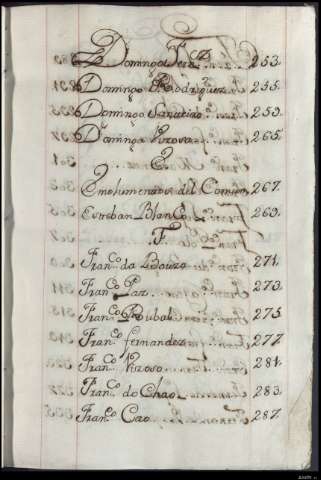 Domingo Ferz 253.
Domingo Rodriguez 255.
Domingo Santeiro 259.
Da. Dominga Viroso 265.
E
Emolumentos del Comun 267.
Esteban Blanco 269.
F
Franco. da Bouza 271.
Franco. Paz 273.
Franco. Rubal 275
Franco. fernandez 277
Franco. Viroso 281.
Franco. do Chao 283.
Franco. Cao 287.